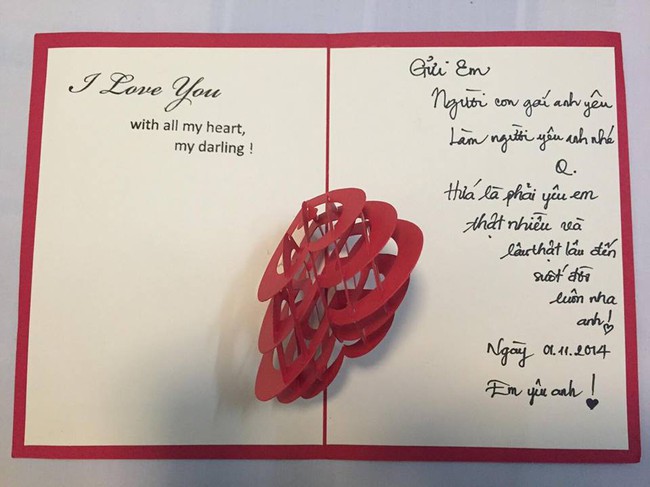 I Love You
with all my heart,
my darling !
Gửi Em
Người con gái anh yêu
Làm người yêu anh nhé
Q.
Hứá là phải yêu em
thật nhiều và
lâu thật lâu đến
suốt đời
luôn nha
anh!
Ngày 01.11.2014
Em yêu anh !